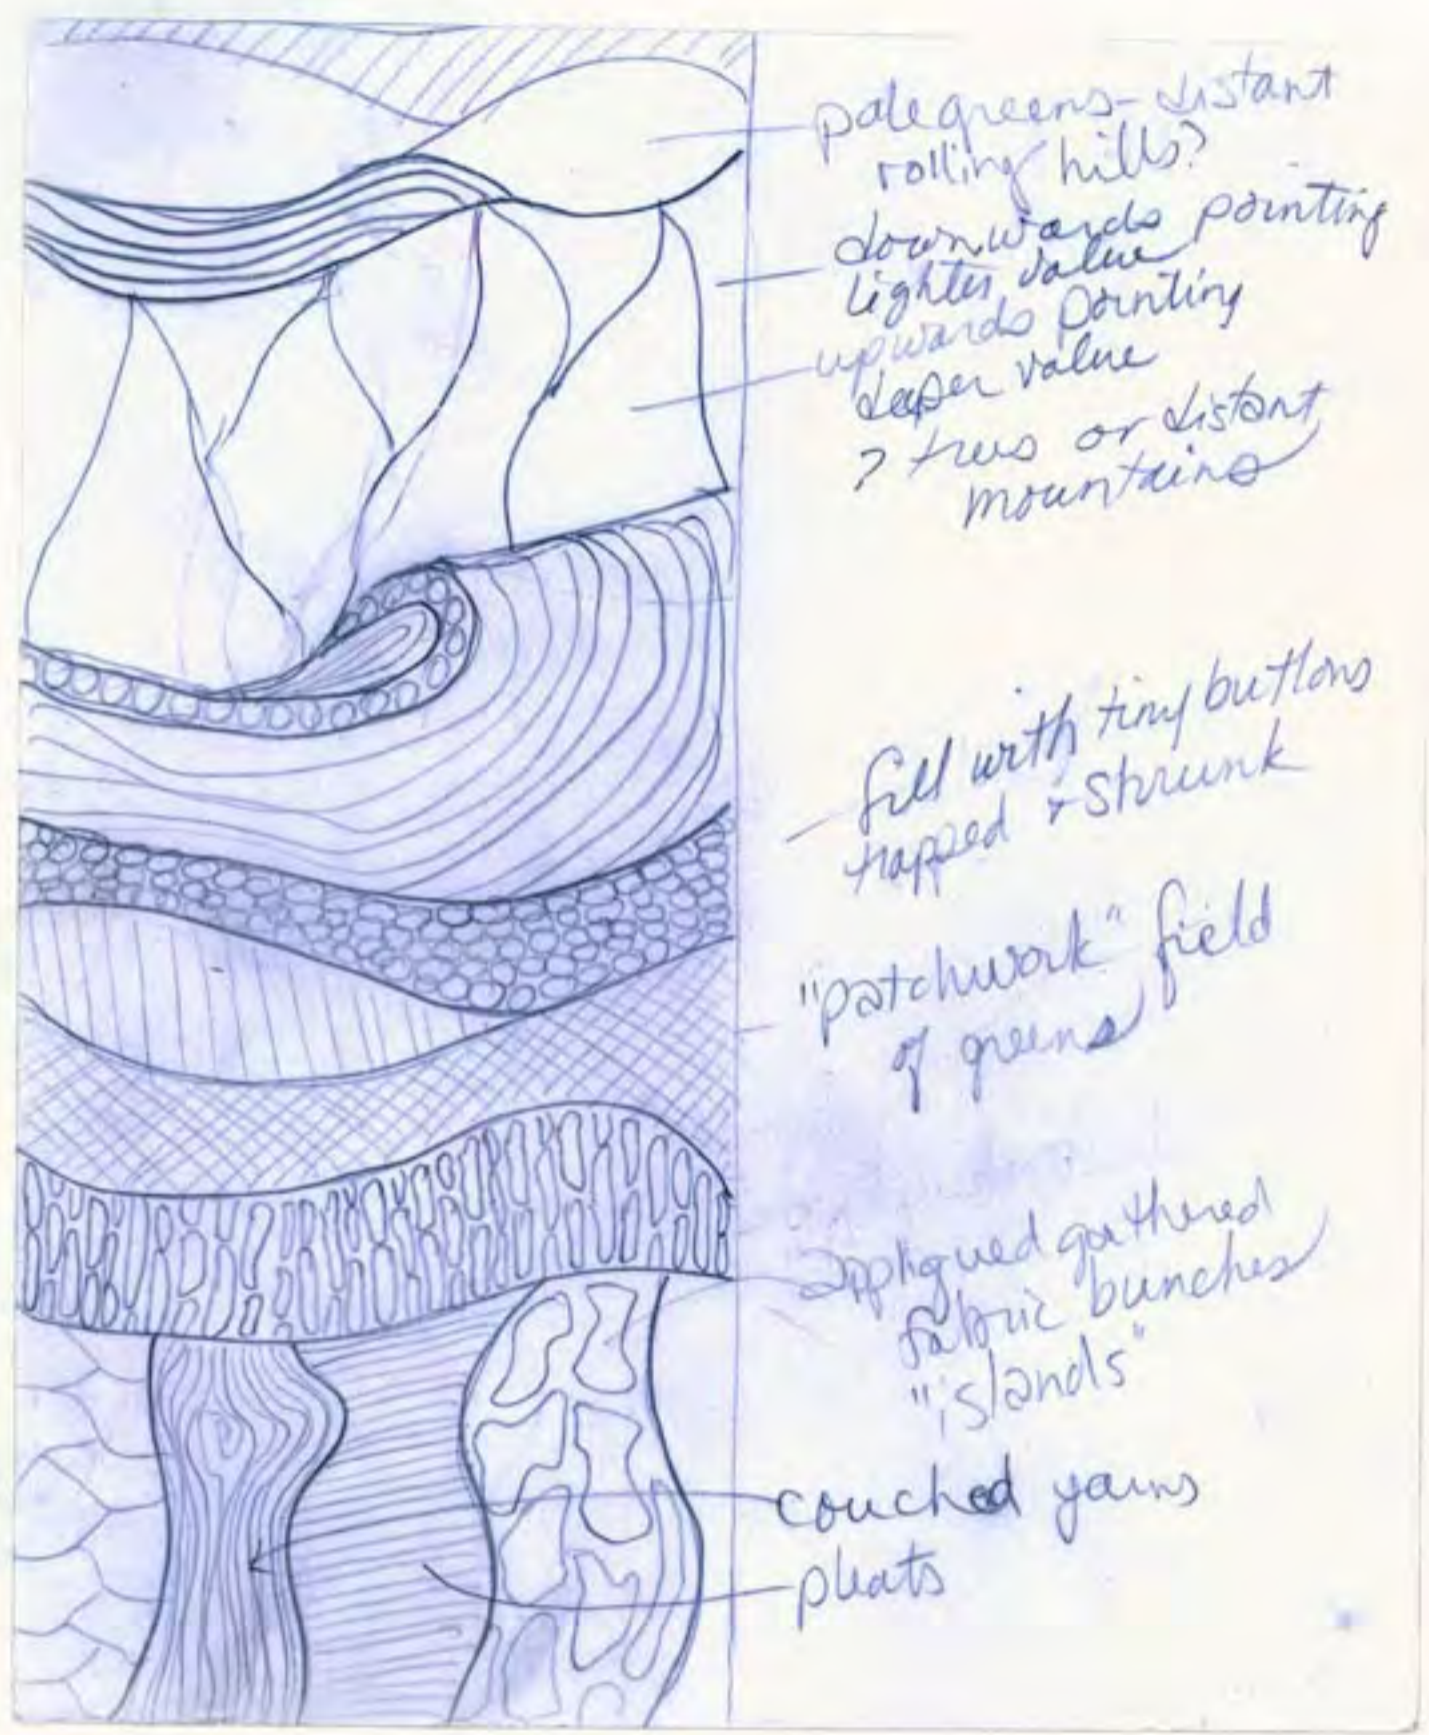 pale greens - distant
rolling hills?
downwards pointing
lighter value
upwards pointing
deeper value
? trees or distant
mountains
fill with tiny buttons
trapped & shrunk
"patchwork" field
of greens
appliqued gathered
fabric bunches
"islands"
couched yarns
pleats